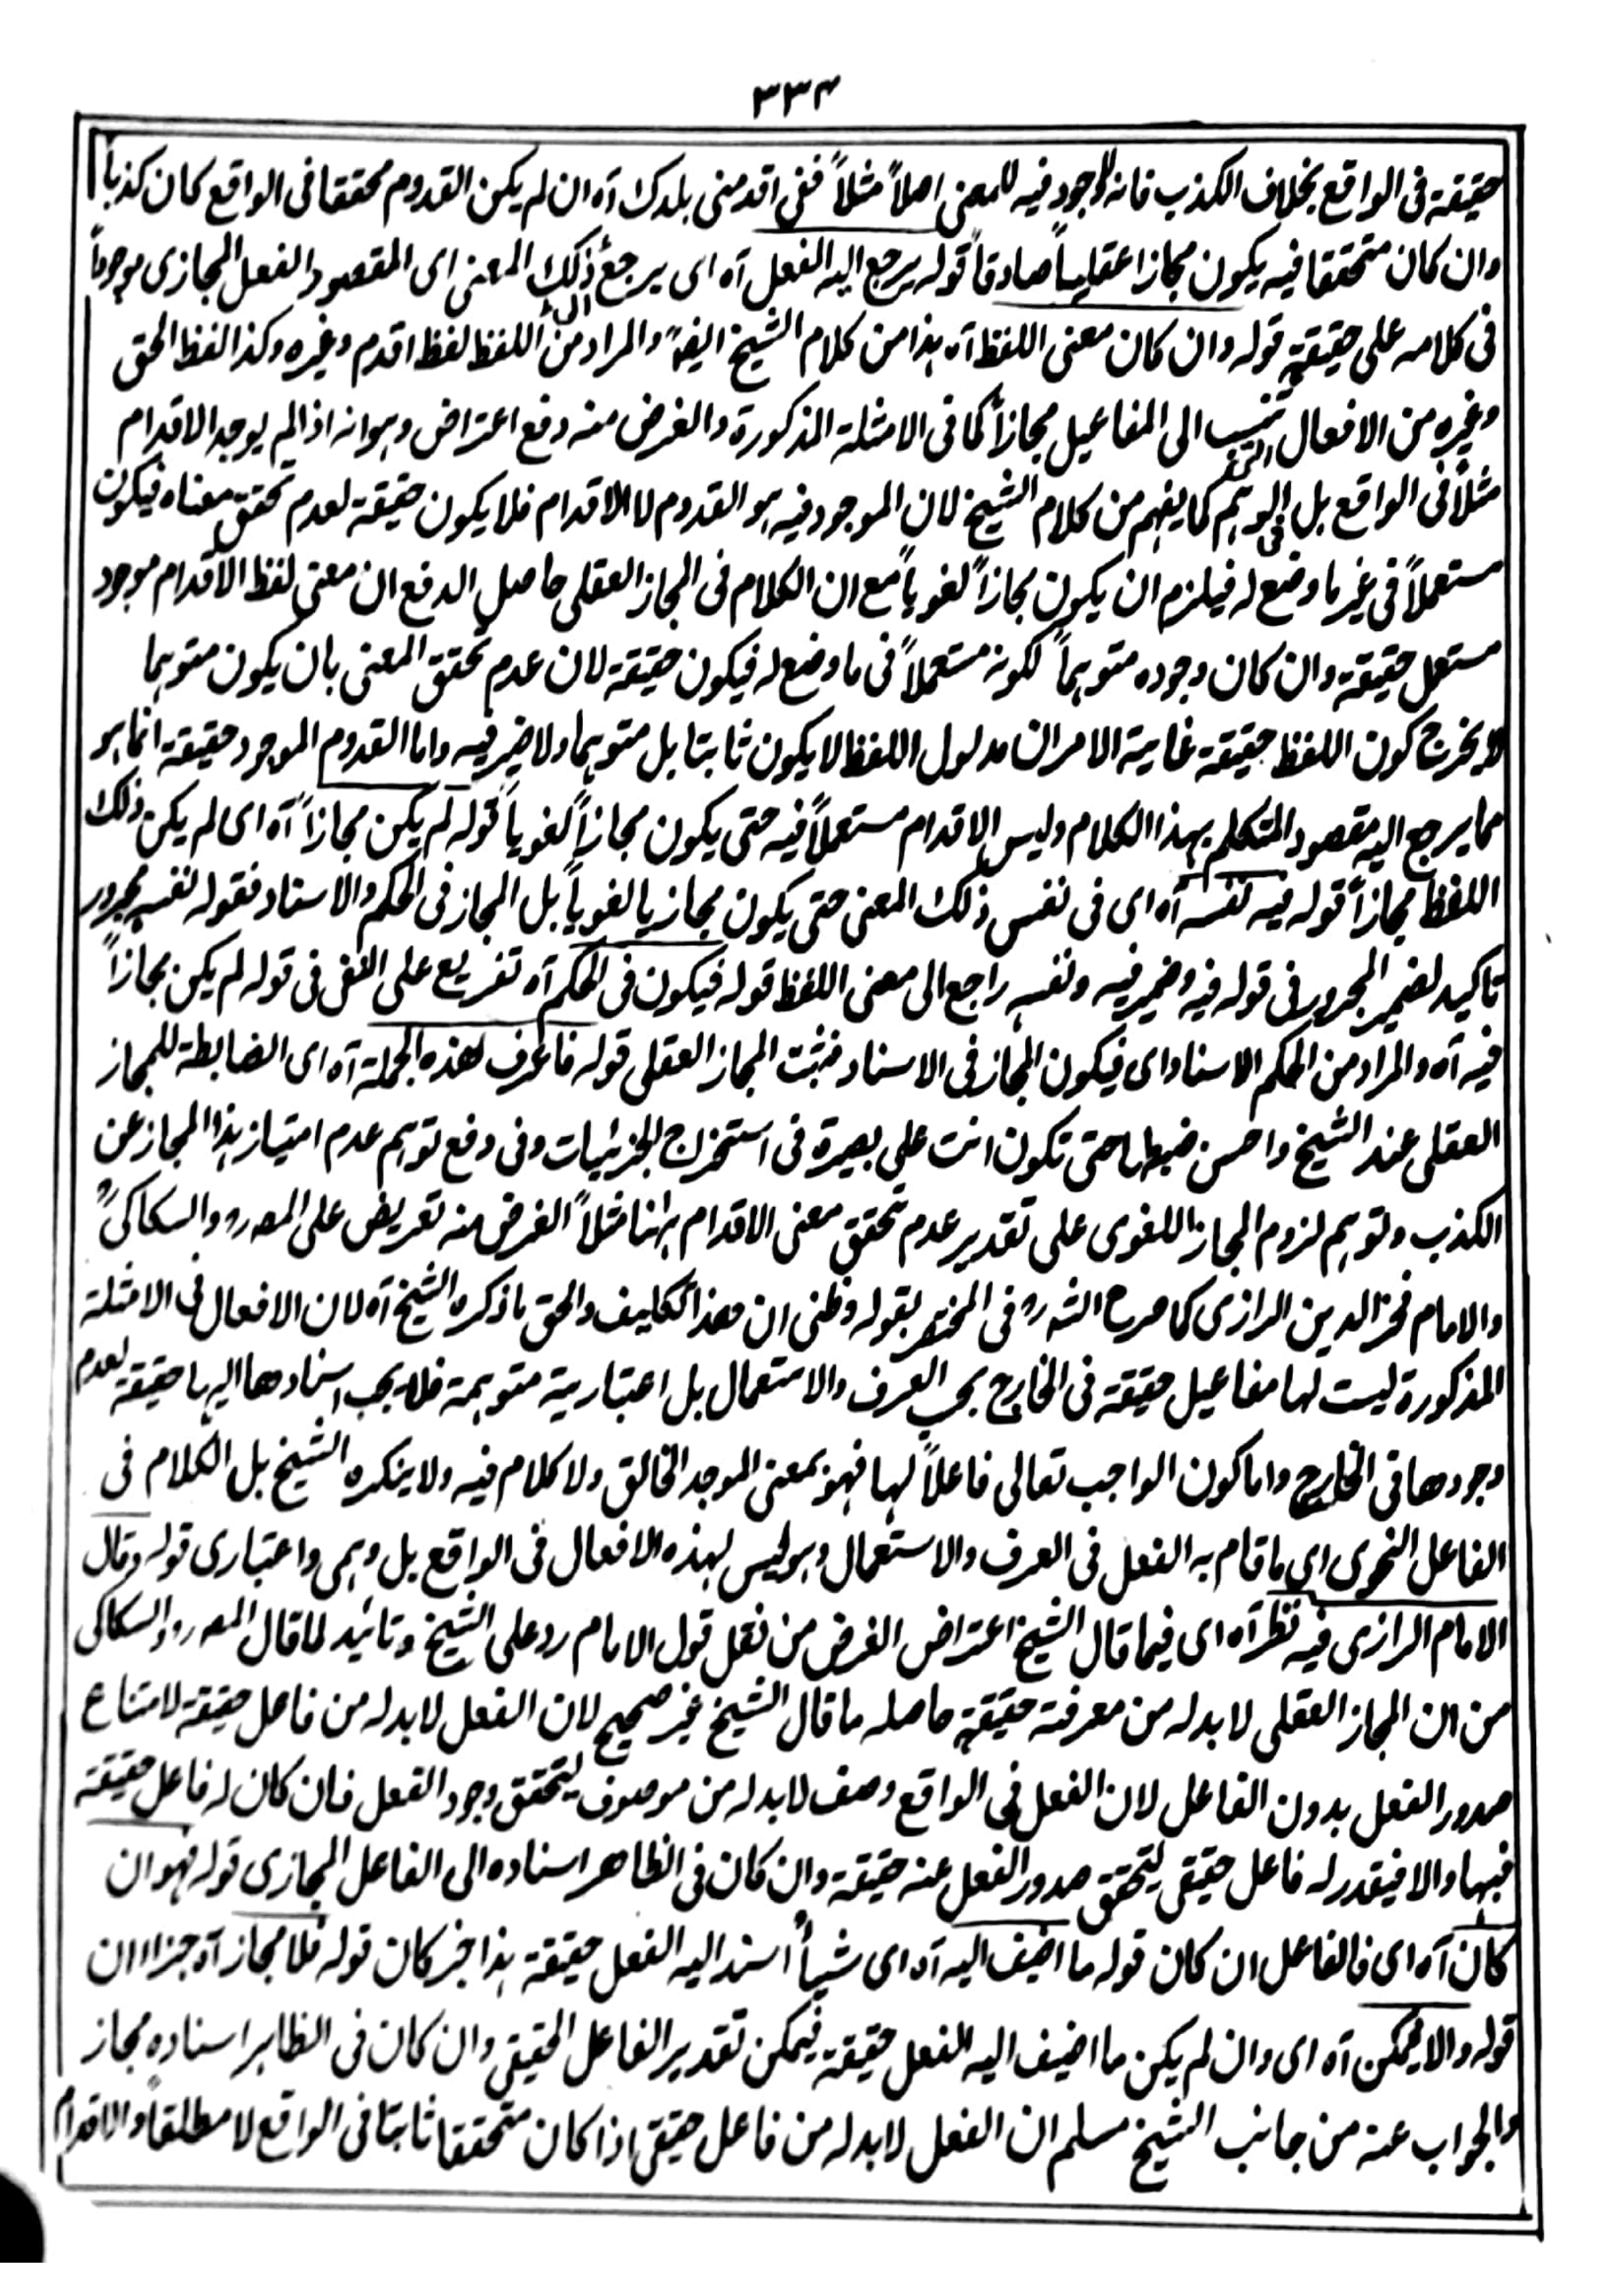 ٣٣٤
حقيقة فى الواقع بخلاف الكذب فانه لا وجود فيه للمعنى اصلاً مثلاً ففى اقدمنى بلدك آه ان لم يكن القدوم محققا فى الواقع كان كذباً
وان كان متحققا فيه يكون مجازا عقلياً صادقاً قوله يرجع اليه الفعل آه اى يرجع ذلك المعنى اى المقصود الفعل المجازى موجوداً
فى كلامه على حقيقة قوله وان كان معنى اللفظ آه هذا من كلام الشيخ ايضاً والمراد من اللفظ لفظ اقدم وغيره وكذا لفظ الحق
وغيره من الافعال تنسب الى المفاعيل مجازاً كما فى الامثلة المذكورة والغرض منه دفع اعتراض وهو انه اذا لم يوجد الاقدام
مثلاً فى الواقع بل فى الوهم كما يفهم من كلام الشيخ لان الموجود فيه هو القدوم لا الاقدام فلا يكون حقيقة لعدم تحقق معناه فيكون
مستعملاً فى غير ما وضع له فيلزم ان يكون مجازاً لغوياً مع ان الكلام فى المجاز العقلى حاصل الدفع ان معنى لفظ الاقدام موجود
مستعمل حقيقة وان كان وجوده متوهماً لكونه مستعملاً فى ما وضع له فيكون حقيقة لان عدم تحقق المعنى بان يكون متوهما
لا يخرج كون اللفظ حقيقة غاية الامر ان مدلول اللفظ لا يكون ثابتا بل متوهما ولا ضير فيه واما القدوم الموجود حقيقة انما هو
مما يرجع اليه مقصود المتكلم بهذا الكلام وليس الاقدام مستعملاً فيه حتى يكون مجازاً لغوياً قوله لم يكن مجازاً آه اى لم يكن ذلك
اللفظ مجازاً قوله فيه نفسه آه اى فى نفس ذلك المعنى حتى يكون مجازيا لغوياً بل المجاز فى الحكم والاسناد فقوله نفسه مجرور
تاكيد لضمير المجرور فى قوله فيه وضمير فيه ونفسه راجع الى معنى اللفظ قوله فيكون فى الحكم آه تفريع على النفى فى قوله لم يكن مجازاً
فيه آه والمراد من الحكم الاسناد اى فيكون المجاز فى الاسناد فثبت المجاز العقلى قوله فاعرف هذه الجملة آه اى الضابطة للمجاز
العقلى عند الشيخ واحسن ضبطها حتى تكون انت على بصيرة فى استخراج الجزئيات وفى دفع توهم عدم امتياز هذا المجاز عن
الكذب وتوهم لزوم المجاز اللغوى على تقدير عدم تحقق معنى الاقدام ههنا مثلاً الغرض منه تعريض على المصرو والسكاكى
والامام فخر الدين الرازى كما صرح الشرو فى المختصر بقوله وظنى ان هذا تكليف والحق ما ذكره الشيخ آه لان الافعال فى الامثلة
المذكورة ليست لها مفاعيل حقيقة فى الخارج بحسب العرف والاستعمال بل اعتبارية متوهمة فلا يجب اسنادها اليها حقيقة لعدم
وجودها فى الخارج واما كون الواجب تعالى فاعلاً لها فهو بمعنى الموجد الخالق ولا كلام فيه ولا ينكره الشيخ بل الكلام فى
الفاعل النحوى اى ما قام به الفعل فى العرف والاستعمال وهو ليس لهذه الافعال فى الواقع بل وهمى واعتبارى قوله وقال
الامام الرازى فيه نظر آه اى فيما قال الشيخ اعتراض الغرض من نقل قول الامام رد على الشيخ وتائيد لما قال المصرو والسكاكى
من ان المجاز العقلى لا بد له من معرفة حقيقة حاصله ما قال الشيخ غير صحيح لان الفعل لا بد له من فاعل حقيقة لامتناع
صدور الفعل بدون الفاعل لان الفعل فى الواقع وصف لا بد له من موصوف ليتحقق وجود الفعل فان كان له فاعل حقيقة
فبها والا فيقدر له فاعل حقيقى ليتحقق صدور الفعل عنه حقيقة وان كان فى الظاهر اسناده الى الفاعل المجازى قوله فهو ان
كان آه اى فالفاعل ان كان قوله ما اضيف اليه آه اى شيأ اسند اليه الفعل حقيقة هذا خبر كان قوله فلا مجاز آه جزاء ان
قوله والا يمكن آه اى وان لم يكن ما اضيف اليه الفعل حقيقة فيمكن تقدير الفاعل الحقيقى وان كان فى الظاهر اسناده مجاز
والجواب عنه من جانب الشيخ مسلم ان الفعل لا بد له من فاعل حقيقى اذا كان متحققا ثابتا فى الواقع لا مطلقاً والاقدام